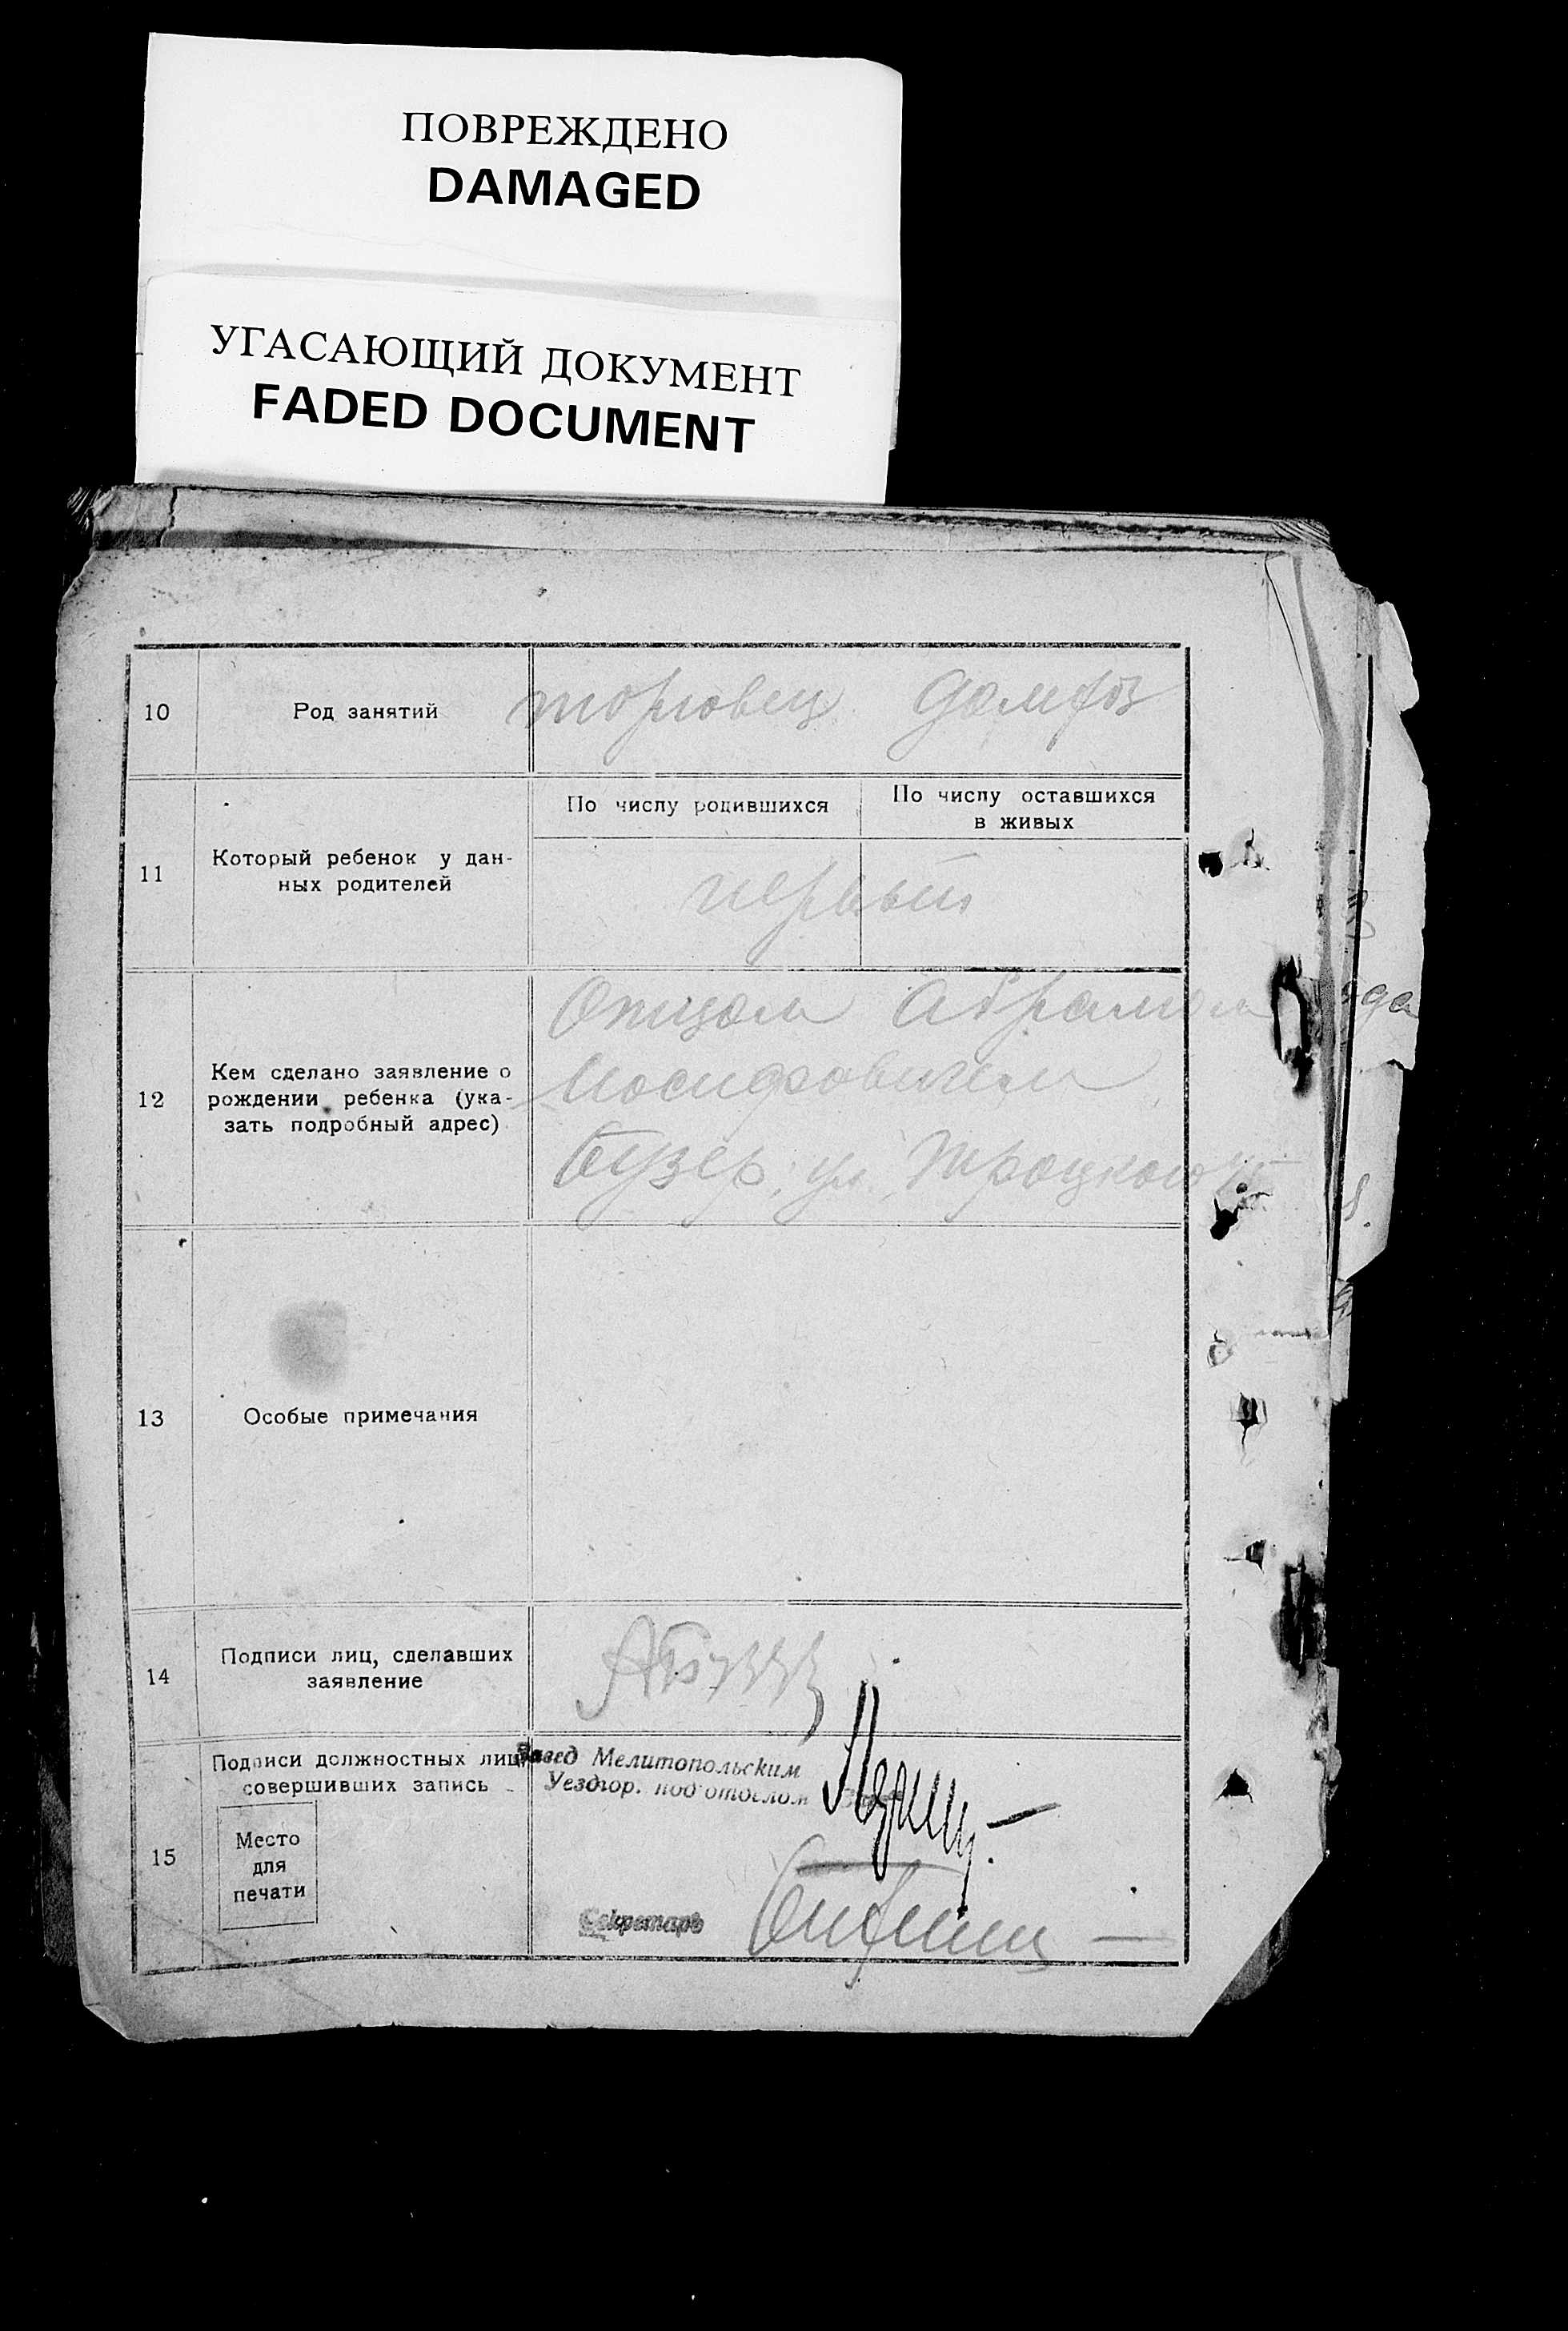 ПОВРЕЖДЕНО
DAMAGED
УГАСАЮЩИЙ ДОКУМЕНТ
FADED DOCUMENT
10 Род занятий торговец
По числу родившихся По числу оставшихся
в живых
11 Который ребенок у дан-
ных родителей первый
Отцом Абрамом
12 Кем сделано заявление о
рождении ребенка (ука-
зать подробный адрес)
Иосифовичем
Бузер, ул. Троцкого
13 Особые примечания
14 Подписи лиц, сделавших
заявление
Подписи должностных лиц
совершивших запись
Завед Мелитопольским
Уездгор. подотделом
15 Место
для
печати
Секретарь